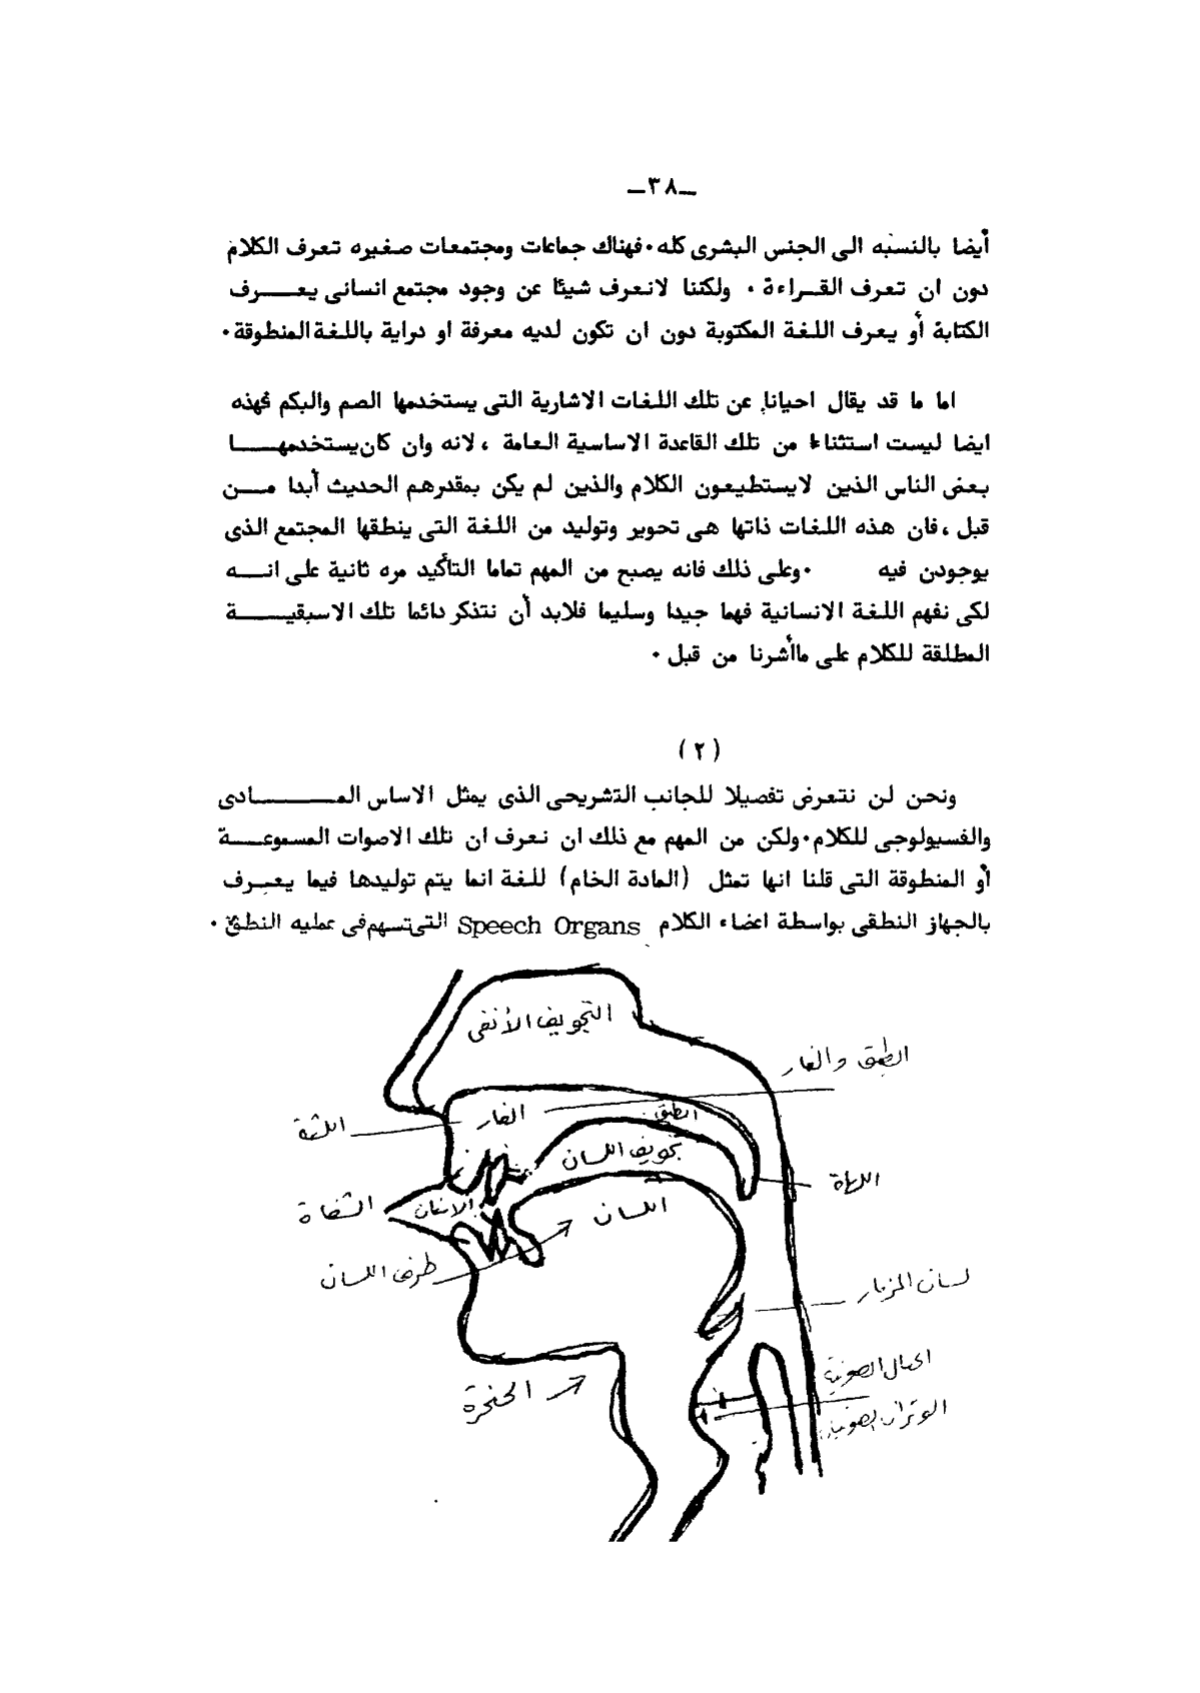 ـ٣٨ـ
أيضا بالنسبه الى الجنس البشرى كله٠فهناك جماعات ومجتمعات صغيره تعرف الكلام
دون ان تعرف القراءة ٠ ولكننا لانعرف شيئا عن وجود مجتمع انسانى يعرف
الكتابة أو يعرف اللغة المكتوبة دون ان تكون لديه معرفة او دراية باللغة المنطوقة٠
اما ما قد يقال احيانا عن تلك اللغات الاشارية التى يستخدمها الصم والبكم فهذه
ايضا ليست استثناءا من تلك القاعدة الاساسية العامة ، لانه وان كان يستخدمها
بعض الناس الذين لايستطيعون الكلام والذين لم يكن بمقدرهم الحديث أبدا من
قبل ، فان هذه اللغات ذاتها هى تحوير وتوليد من اللغة التى ينطقها المجتمع الذى
يوجودن فيه ٠وعلى ذلك فانه يصبح من المهم تماما التأكيد مره ثانية على انه
لكى نفهم اللغة الانسانية فهما جيدا وسليما فلابد أن نتذكر دائما تلك الاسبقية
المطلقة للكلام على ماأشرنا من قبل ٠
( ٢ )
ونحن لن نتعرض تفصيلا للجانب التشريحى الذى يمثل الاساس المادى
والفسيولوجى للكلام٠ولكن من المهم مع ذلك ان نعرف ان تلك الاصوات المسموعة
أو المنطوقة التى قلنا انها تمثل (المادة الخام) للغة انما يتم توليدها فيما يعرف
بالجهاز النطقى بواسطة اعضاء الكلام Speech Organs التى تسهم فى عمليه النطق ٠
التجويف الأنفى
الطبق والغار
الغار
الطبق
اللثة
تجويف اللسان
اللهاة
الاسنان
الشفاة
اللسان
طرف اللسان
لسان المزمار
الحبال الصوتية
الحنجرة
الوتران الصوتيان